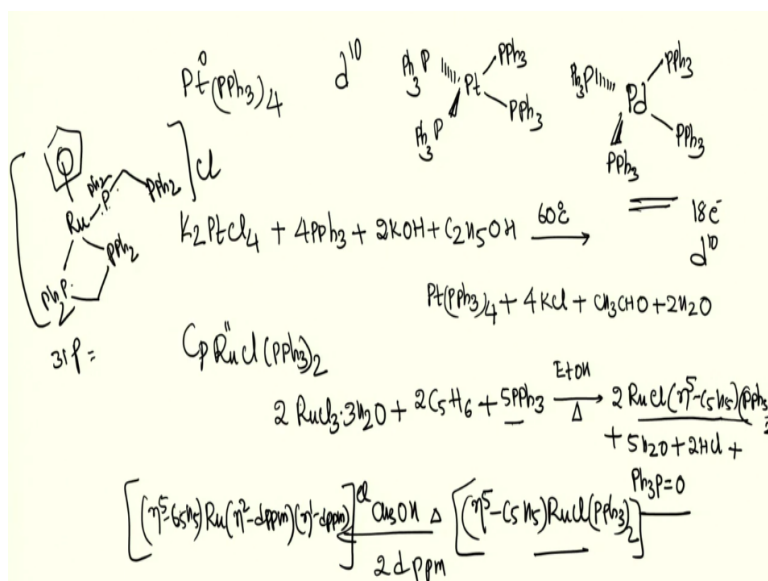 Pt⁰(PPh3)4 d¹⁰
Ph3P PPh3
Pt
PPh3
Ph3P
Ph3P PPh3
Pd
PPh3
PPh3
18e⁻
d¹⁰
] Cl
Ru
Ph2
P
PPh2
PPh2
Ph2P
31P =
K2PtCl4 + 4PPh3 + 2KOH + C2H5OH 60°C →
Pt(PPh3)4 + 4KCl + CH3CHO + 2H2O
CpRuᴵᴵCl(PPh3)2
2 RuCl3·3H2O + 2C5H6 + 5PPh3 EtOH Δ → 2 RuCl(η⁵-C5H5)(PPh3)2
+ 5H2O + 2HCl +
Ph3P=O
[(η⁵-C5H5)Ru(η²-dppm)(η¹-dppm)]Cl CH3OH Δ [(η⁵-C5H5)RuCl(PPh3)2]
2dppm